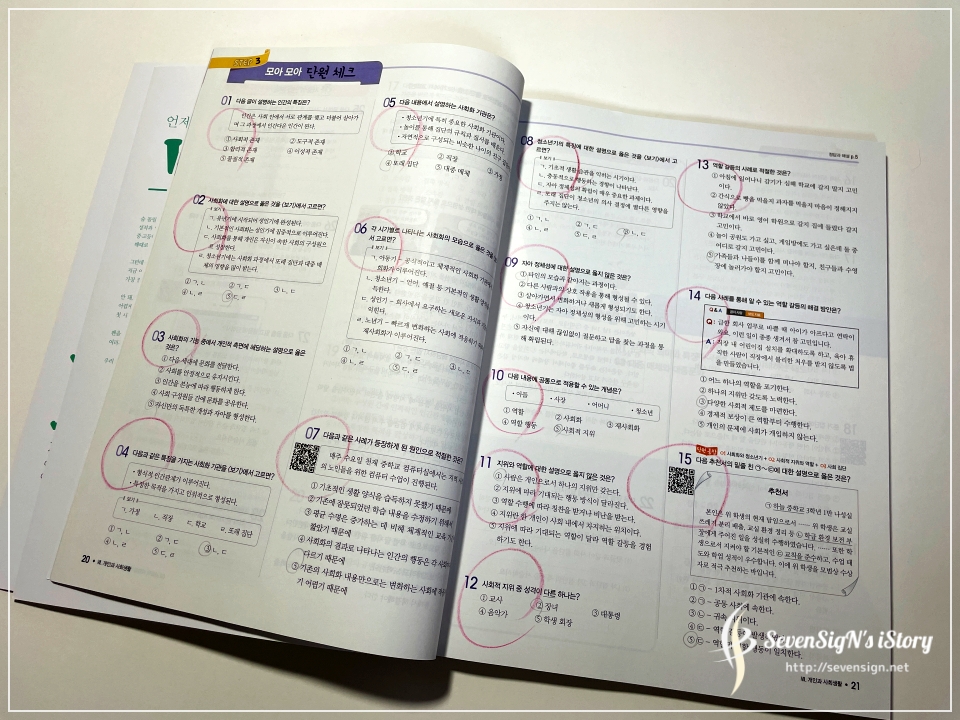 STEP 3
모아 모아 단원 체크
01 다음 글이 설명하는 인간의 특징은?
인간은 사회 안에서 서로 관계를 맺고 더불어 살아가
며 그 과정에서 인간다운 인간이 된다.
① 사회적 존재 ② 도구적 존재
③ 합리적 존재 ④ 이성적 존재
⑤ 물질적 존재
02 사회화에 대한 설명으로 옳은 것을 <보기>에서 고르면?
보기
ㄱ. 유년기에 시작되어 성인기에 완성된다.
ㄴ. 기본적인 사회화는 성인기에 집중적으로 이루어진다.
ㄷ. 사회화를 통해 개인은 자신이 속한 사회의 구성원으
로 성장한다.
ㄹ. 청소년기에는 사회화 과정에서 또래 집단과 대중 매
체의 영향을 많이 받는다.
① ㄱ, ㄴ ② ㄱ, ㄷ ③ ㄴ, ㄷ
④ ㄴ, ㄹ ⑤ ㄷ, ㄹ
03 사회화의 기능 중에서 개인적 측면에 해당하는 설명으로 옳은
것은?
① 다음 세대에 문화를 전달한다.
② 사회를 안정적으로 유지시킨다.
③ 인간을 본능에 따라 행동하게 한다.
④ 사회 구성원들 간에 문화를 공유한다.
⑤ 자신만의 독특한 개성과 자아를 형성한다.
04 다음과 같은 특징을 가지는 사회화 기관을 <보기>에서 고르면?
• 형식적 인간관계가 이루어진다.
• 특정한 목적을 가지고 인위적으로 형성된다.
보기
ㄱ. 가정 ㄴ. 직장 ㄷ. 학교 ㄹ. 또래 집단
① ㄱ, ㄴ ② ㄱ, ㄷ ③ ㄴ, ㄷ
④ ㄴ, ㄹ ⑤ ㄷ, ㄹ
20 • Ⅶ. 개인과 사회생활
05 다음 내용에서 설명하는 사회화 기관은?
• 청소년기에 특히 중요한 사회화 기관이다.
• 놀이를 통해 집단의 규칙과 질서를 배운다.
• 자연적으로 구성되는 비슷한 나이의 친구
① 학교 ② 직장 ③ 가정
④ 또래 집단 ⑤ 대중 매체
06 각 시기별로 나타나는 사회화의 모습으로 옳은 것을
서 고르면?
보기
ㄱ. 아동기 – 공식적이고 체계적인 사회화 기관
회화가 이루어진다.
ㄴ. 청소년기 – 언어, 예절 등 기본적인 생활
득한다.
ㄷ. 성인기 – 회사에서 요구하는 새로운 지식과
익힌다.
ㄹ. 노년기 – 빠르게 변화하는 사회에 적응하기
재사회화가 이루어진다.
① ㄱ, ㄴ ② ㄱ, ㄷ ③ ㄴ, ㄷ
④ ㄴ, ㄹ ⑤ ㄷ, ㄹ
07 다음과 같은 사례가 등장하게 된 원인으로 적절한 것은?
매주 수요일 천재 중학교 컴퓨터실에서는 지역
의 노인들을 위한 컴퓨터 수업이 진행된다.
① 기초적인 생활 양식을 습득하지 못했기 때문에
② 기존에 잘못되었던 학습 내용을 수정하기 위해서
③ 평균 수명은 증가하는 데 비해 체계적인 교육
않았기 때문에
④ 사회화의 결과로 나타나는 인간의 행동은 각 사회
다르기 때문에
⑤ 기존의 사회화 내용만으로는 변화하는 사회에
기 어렵기 때문에
정답과 해설 p.5
08 청소년기의 특징에 대한 설명으로 옳은 것을 <보기>에서 고
르면?
보기
ㄱ. 기초적 생활 습관을 익히는 시기이다.
ㄴ. 충동적으로 행동하는 경향이 나타난다.
ㄷ. 자아 정체성의 확립이 매우 중요한 과제이다.
ㄹ. 또래 집단이 청소년의 의사 결정에 별다른 영향을
주지는 않는다.
① ㄱ, ㄴ ② ㄱ, ㄷ ③ ㄴ, ㄷ
④ ㄴ, ㄹ ⑤ ㄷ, ㄹ
09 자아 정체성에 대한 설명으로 옳지 않은 것은?
① 타인의 모습과 같아지는 과정이다.
② 다른 사람과의 상호 작용을 통해 형성될 수 있다.
③ 살아가면서 변화하거나 새롭게 형성되기도 한다.
④ 청소년기는 자아 정체성의 형성을 위해 고민하는 시기
이다.
⑤ 자신에 대해 끊임없이 질문하고 답을 찾는 과정을 통
해 확립된다.
10 다음 내용에 공통으로 적용할 수 있는 개념은?
• 아들 • 사장 • 어머니 • 청소년
① 역할 ② 사회화 ③ 재사회화
④ 역할 행동 ⑤ 사회적 지위
11 지위와 역할에 대한 설명으로 옳지 않은 것은?
① 사람은 개인으로서 하나의 지위만 갖는다.
② 지위에 따라 기대되는 행동 방식이 달라진다.
③ 역할 수행에 따라 칭찬을 받거나 비난을 받는다.
④ 지위란 한 개인이 사회 내에서 차지하는 위치이다.
⑤ 지위에 따라 기대되는 역할이 달라 역할 갈등을 경험
하기도 한다.
12 사회적 지위 중 성격이 다른 하나는?
① 교사 ② 장녀 ③ 대통령
④ 음악가 ⑤ 학생 회장
13 역할 갈등의 사례로 적절한 것은?
① 아침에 일어나니 감기가 심해 학교에 갈지 말지 고민
이다.
② 간식으로 빵을 먹을지 과자를 먹을지 마음이 정해지지
않았다.
③ 학교에서 바로 영어 학원으로 갈지 집에 들렀다 갈지
고민이다.
④ 놀이 공원도 가고 싶고, 게임방에도 가고 싶은데 둘 중
어디로 갈지 고민이다.
⑤ 가족들과 나들이를 함께 떠나야 할지, 친구들과 수영
장에 놀러가야 할지 고민이다.
14 다음 사례를 통해 알 수 있는 역할 갈등의 해결 방안은?
Q&A
Q: 급한 회사 업무로 바쁠 때 아이가 아프다고 연락이
와요. 이런 일이 종종 생겨서 참 고민입니다.
A: 직장 내 어린이집 설치를 확대하도록 하고, 육아 휴
직한 사람이 직장에서 불리한 처우를 받지 않도록 법
을 만들었습니다.
① 어느 하나의 역할을 포기한다.
② 하나의 지위만 갖도록 노력한다.
③ 다양한 사회적 제도를 마련한다.
④ 경제적 보상이 큰 역할부터 수행한다.
⑤ 개인의 문제에 사회가 개입하지 않는다.
01 사회화와 청소년기 + 02 사회적 지위와 역할 + 03 사회 집단
15 다음 추천서의 밑줄 친 ㉠~㉤에 대한 설명으로 옳은 것은?
추천서
㉠ 하늘 중학교 3학년 1반 나성실
본인은 위 학생의 현재 담임으로서 …… 위 학생은 교실
쓰레기 분리 배출, 교실 환경 정리 등 ㉡ 학급 환경 보전 부
장에게 주어진 일을 성실히 수행하였습니다. …… 또한 학
생으로서 지켜야 할 기본적인 ㉢ 교칙을 준수하고, 수업 태
도와 학업 성적이 우수합니다. 이에 위 학생을 모범상 수상
자로 적극 추천하는 바입니다.
① ㉠ – 1차적 사회화 기관에 속한다.
② ㉠ – 공동 사회에 속한다.
③ ㉡ – 귀속 지위이다.
행동이 일치한다.
Ⅶ. 개인과 사회생활 • 21
SevenSigN's iStory
http://sevensign.net